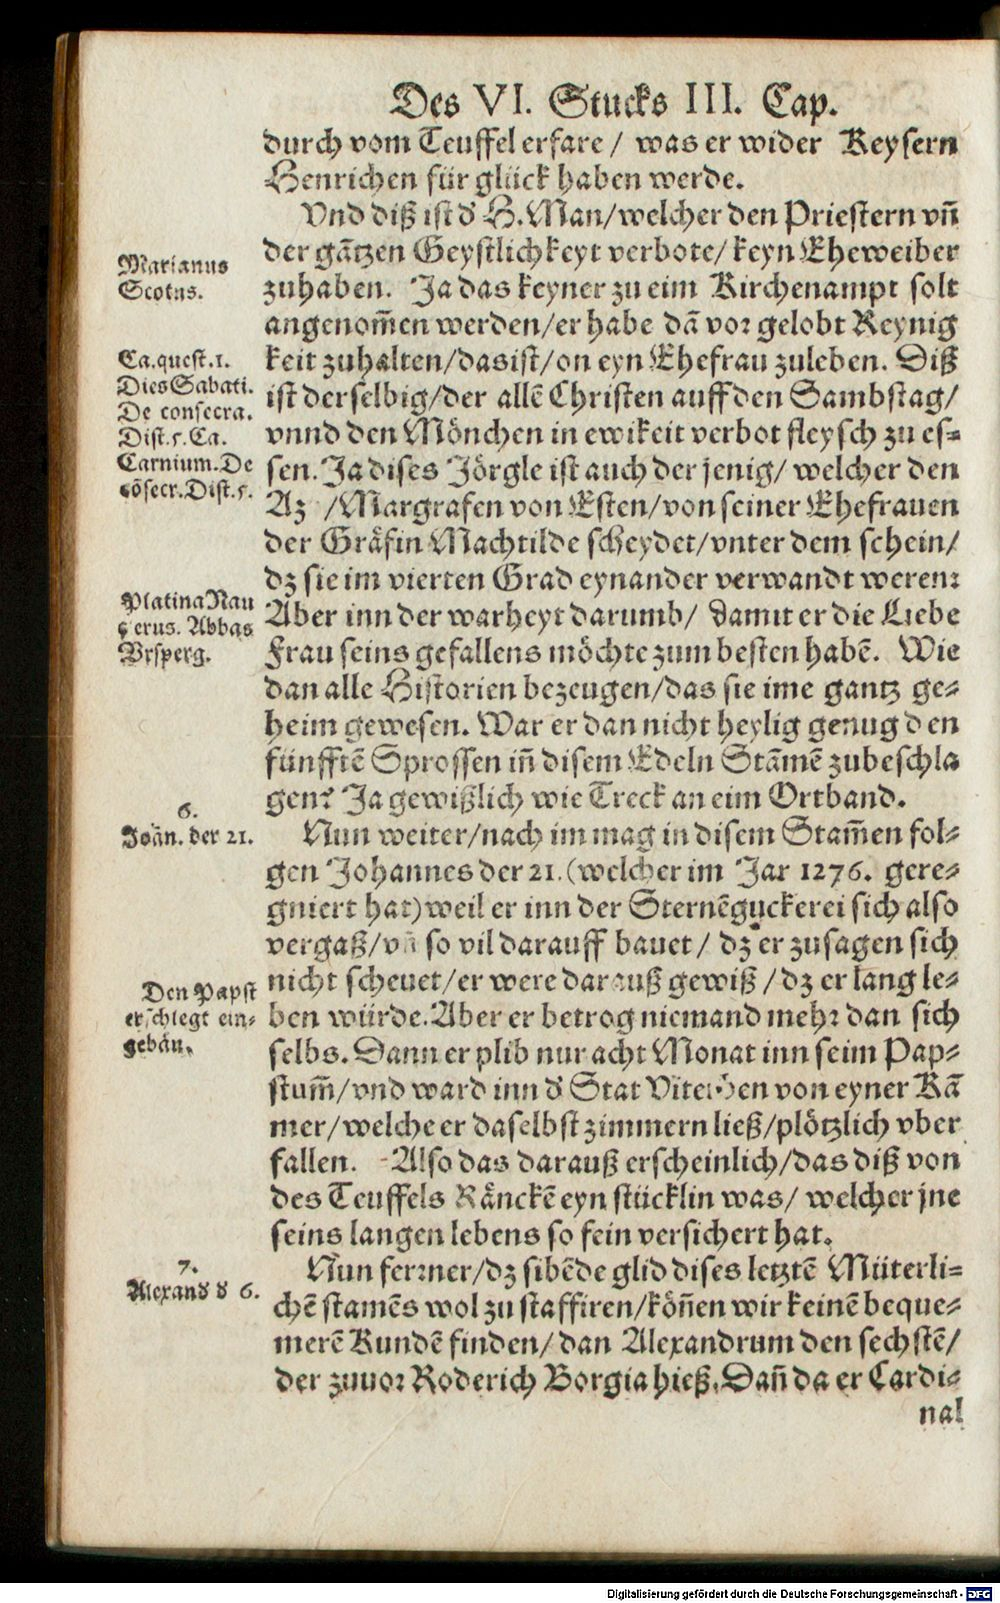 Des VI. Stucks III. Cap.
durch vom Teuffel erfare / was er wider Keysern
Henrichen für glück haben werde.
Vnd diß ist d' H. Man/welcher den Priestern vñ
der gātzen Geystlichkeyt verbote/ keyn Eheweiber
zuhaben. Ja das keyner zu eim Kirchenampt solt
angenom̄en werden/er habe dā vor gelobt Reynig
keit zuhalten/das ist/on eyn Ehefrau zuleben. Diß
ist derselbig/der allē Christen auff den Sambstag/
vnnd den Mönchen in ewikeit verbot fleysch zu es⸗
sen. Ja dises Jörgle ist auch der jenig/ welcher den
Az /Margrafen von Esten/von seiner Ehefrauen
der Gräfin Machtilde scheydet/vnter dem schein/
dz sie im vierten Grad eynander verwandt weren:
Aber inn der warheyt darumb/ damit er die Liebe
Frau seins gefallens möchte zum besten habē. Wie
dan alle Historien bezeugen/das sie ime gantz ge⸗
heim gewesen. War er dan nicht heylig genug den
fünfftē Sprossen iñ disem Edeln Stām̄ē zubeschla
gen? Ja gewißlich wie Treck an eim Ortband.
Nun weiter/nach im mag in disem Stam̄en fol⸗
gen Johannes der 21. (welcher im Jar 1276. gere⸗
gniert hat) weil er inn der Sternēguckerei sich also
vergaß/vñ so vil darauff bauet / dz er zusagen sich
nicht scheuet/er were darauß gewiß / dz er lang le⸗
ben würde. Aber er betrog niemand mehr dan sich
selbs. Dann er plib nur acht Monat inn seim Pap⸗
stum̄/vnd ward inn d' Stat Viterben von eyner Kā
mer/welche er daselbst zimmern ließ/plötzlich vber
fallen. Also das darauß erscheinlich/das diß von
des Teuffels Räncken eyn stücklin was/ welcher jne
seins langen lebens so fein versichert hat.
Nun ferrner/dz sibēde glid dises letztē Müterli⸗
chē stamēs wol zu staffiren/köñen wir keinē beque⸗
merē Kundē finden/ dan Alexandrum den sechstē/
der zuuor Roderich Borgia hieß. Dañ da er Cardi⸗
nal
Marianus
Scotus.
Ca.quest.1.
Dies Sabati.
De consecra.
Dist.5.Ca.
Carnium.De
cōsecr.Dist.5.
Platina Nau
cerus. Abbas
Vrsperg.
6.
Joān. der 21.
Den Papst
erschlegt ein⸗
gebäu.
7.
Alexand d' 6.
Digitalisierung gefördert durch die Deutsche Forschungsgemeinschaft - DFG